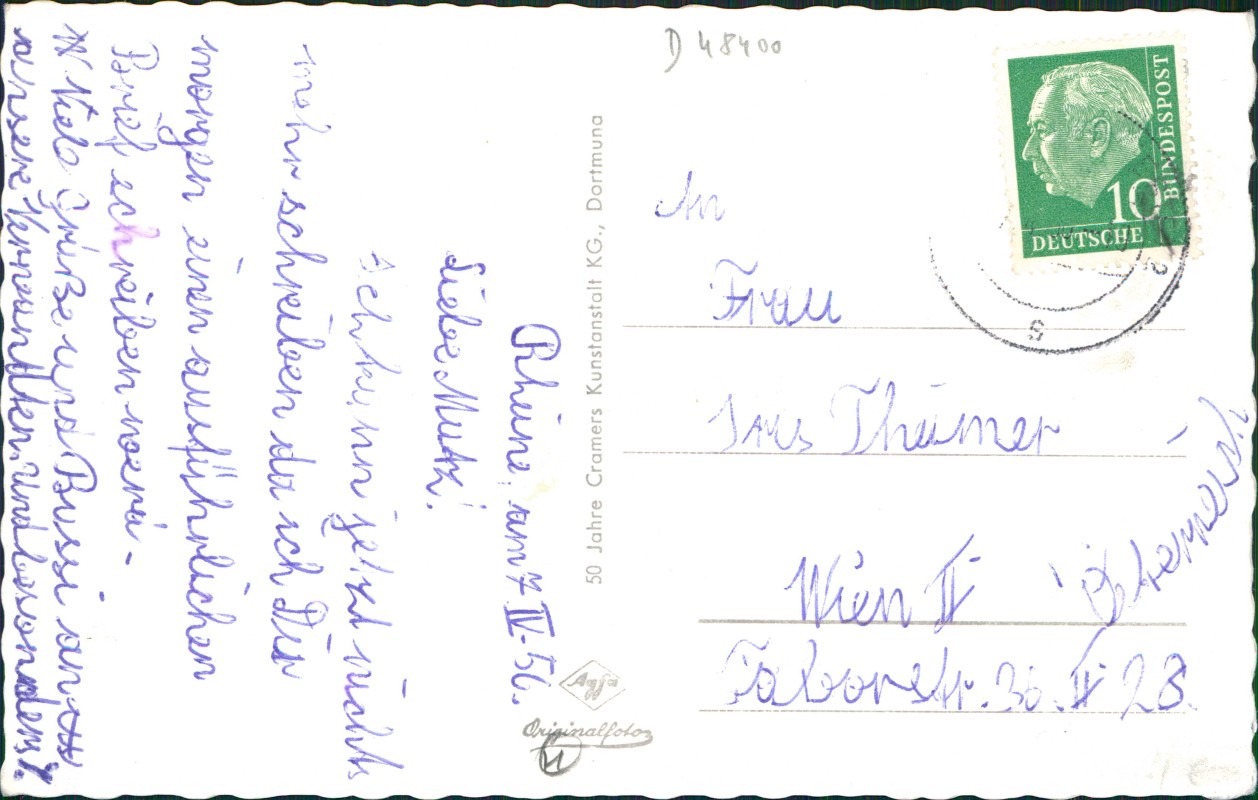 D 48400
DEUTSCHE
BUNDESPOST
10
An
Frau
Thümer
Wien II
Österreich
Taborstr. 36. II 23.
50 Jahre Cramers Kunstanstalt KG., Dortmund
Agfa
Originalfoto
Rheine, am 7 IV. 56.
Liebe Mutz!
Ich kann jetzt nicht
mehr schreiben da ich Dir
morgen einen ausführlichen
Brief schreiben werd -
Viele Grüße und Bussi an
unsere Bekannten und besonders